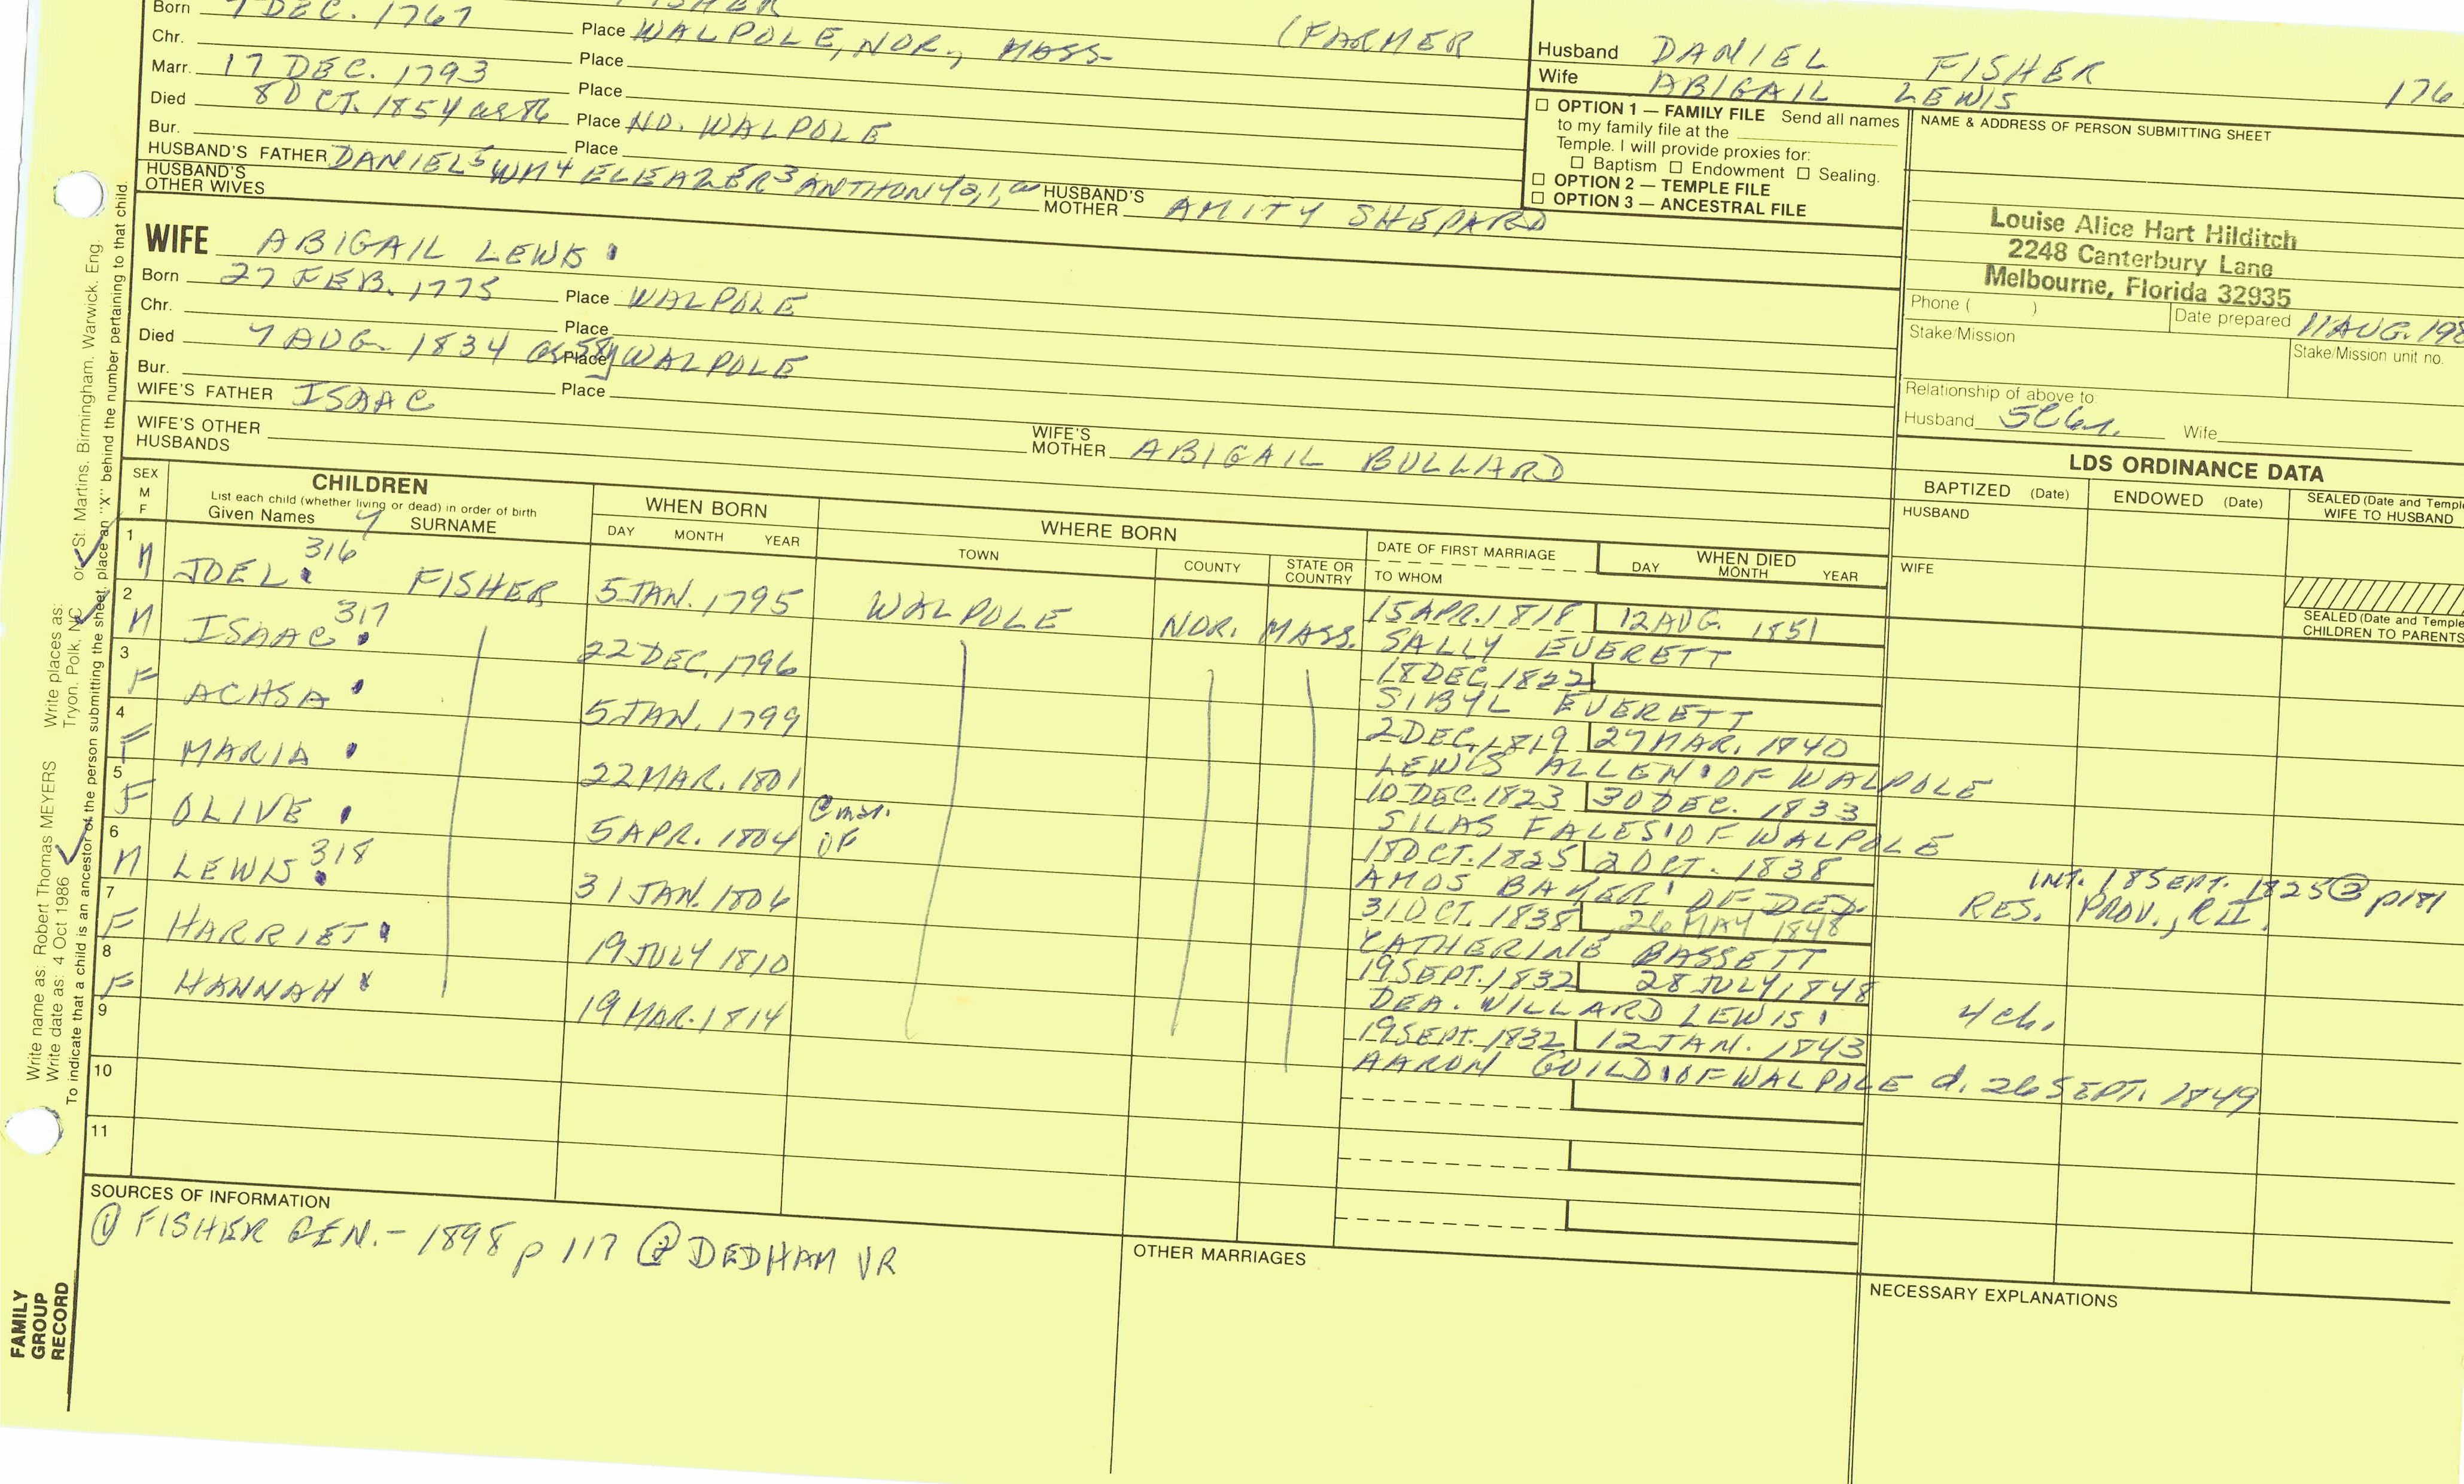 Born 7 DEC. 1767 Place WALPOLE, NOR., MASS. (FARMER
Chr. Place
Marr. 17 DEC. 1793 Place
Died 8 OCT. 1854 ae 86 Place NO. WALPOLE
Bur. Place
HUSBAND'S FATHER DANIEL5 WM4 ELEAZER3 ANTHONY2,1, HUSBAND'S MOTHER AMITY SHEPARD
HUSBAND'S OTHER WIVES
Husband DANIEL FISHER 176
Wife ABIGAIL LEWIS
☐ OPTION 1 — FAMILY FILE Send all names
to my family file at the
Temple. I will provide proxies for:
☐ Baptism ☐ Endowment ☐ Sealing.
☐ OPTION 2 — TEMPLE FILE
☐ OPTION 3 — ANCESTRAL FILE
NAME & ADDRESS OF PERSON SUBMITTING SHEET
Louise Alice Hart Hilditch
2248 Canterbury Lane
Melbourne, Florida 32935
Phone ( ) Date prepared 11 AUG. 198
Stake/Mission Stake/Mission unit no.
Relationship of above to
Husband Wife
WIFE ABIGAIL LEWIS
Born 27 FEB. 1775 Place WALPOLE
Chr. Place
Died 7 AUG. 1834 ae 58y Place WALPOLE
Bur. Place
WIFE'S FATHER ISAAC
WIFE'S MOTHER ABIGAIL BULLARD
WIFE'S OTHER HUSBANDS
LDS ORDINANCE DATA
BAPTIZED (Date) ENDOWED (Date) SEALED (Date and Temple
WIFE TO HUSBAND
HUSBAND
WIFE
SEALED (Date and Temple
CHILDREN TO PARENTS
SEX M F
CHILDREN
List each child (whether living or dead) in order of birth
Given Names 7 SURNAME
WHEN BORN
DAY MONTH YEAR
WHERE BORN
TOWN COUNTY STATE OR COUNTRY
DATE OF FIRST MARRIAGE
TO WHOM
WHEN DIED
DAY MONTH YEAR
1 M JOEL 316 FISHER 5 JAN. 1795 WALPOLE NOR. MASS. 15 APR. 1818 12 AUG. 1851
SALLY EVERETT
2 M ISAAC 317 22 DEC. 1796 18 DEC. 1822
SIBYL EVERETT
3 F ACHSA 5 JAN. 1799 2 DEC. 1819 27 MAR. 1840
LEWIS ALLEN OF WALPOLE
4 F MARIA 22 MAR. 1801 10 DEC. 1823 30 DEC. 1833
SILAS FALES OF WALPOLE
5 F OLIVE 5 APR. 1804 OF 18 OCT. 1825 2 OCT. 1838
AMOS BAKER OF DED. INT. 18 SEPT. 1825 ② p181
6 M LEWIS 318 31 JAN. 1806 31 OCT. 1838 26 MAY 1848 RES. PROV., R.I.
CATHERINE BASSETT
7 F HARRIET 19 JULY 1810 19 SEPT. 1832 28 JULY, 1848
DEA. WILLARD LEWIS 4 ch.
8 F HANNAH 19 MAR. 1814 19 SEPT. 1832 12 JAN. 1843
AARON GUILD OF WALPOLE d. 26 SEPT. 1849
9
10
11
SOURCES OF INFORMATION
① FISHER GEN. - 1898 p 117 ② DEDHAM VR
OTHER MARRIAGES
NECESSARY EXPLANATIONS
Write name as: Robert Thomas MEYERS Write places as: Tryon, Polk, NC or St. Martins, Birmingham, Warwick, Eng.
Write date as: 4 Oct 1986
To indicate that a child is an ancestor of the person submitting the sheet, place an "X" behind the number pertaining to that child.
FAMILY
GROUP
RECORD